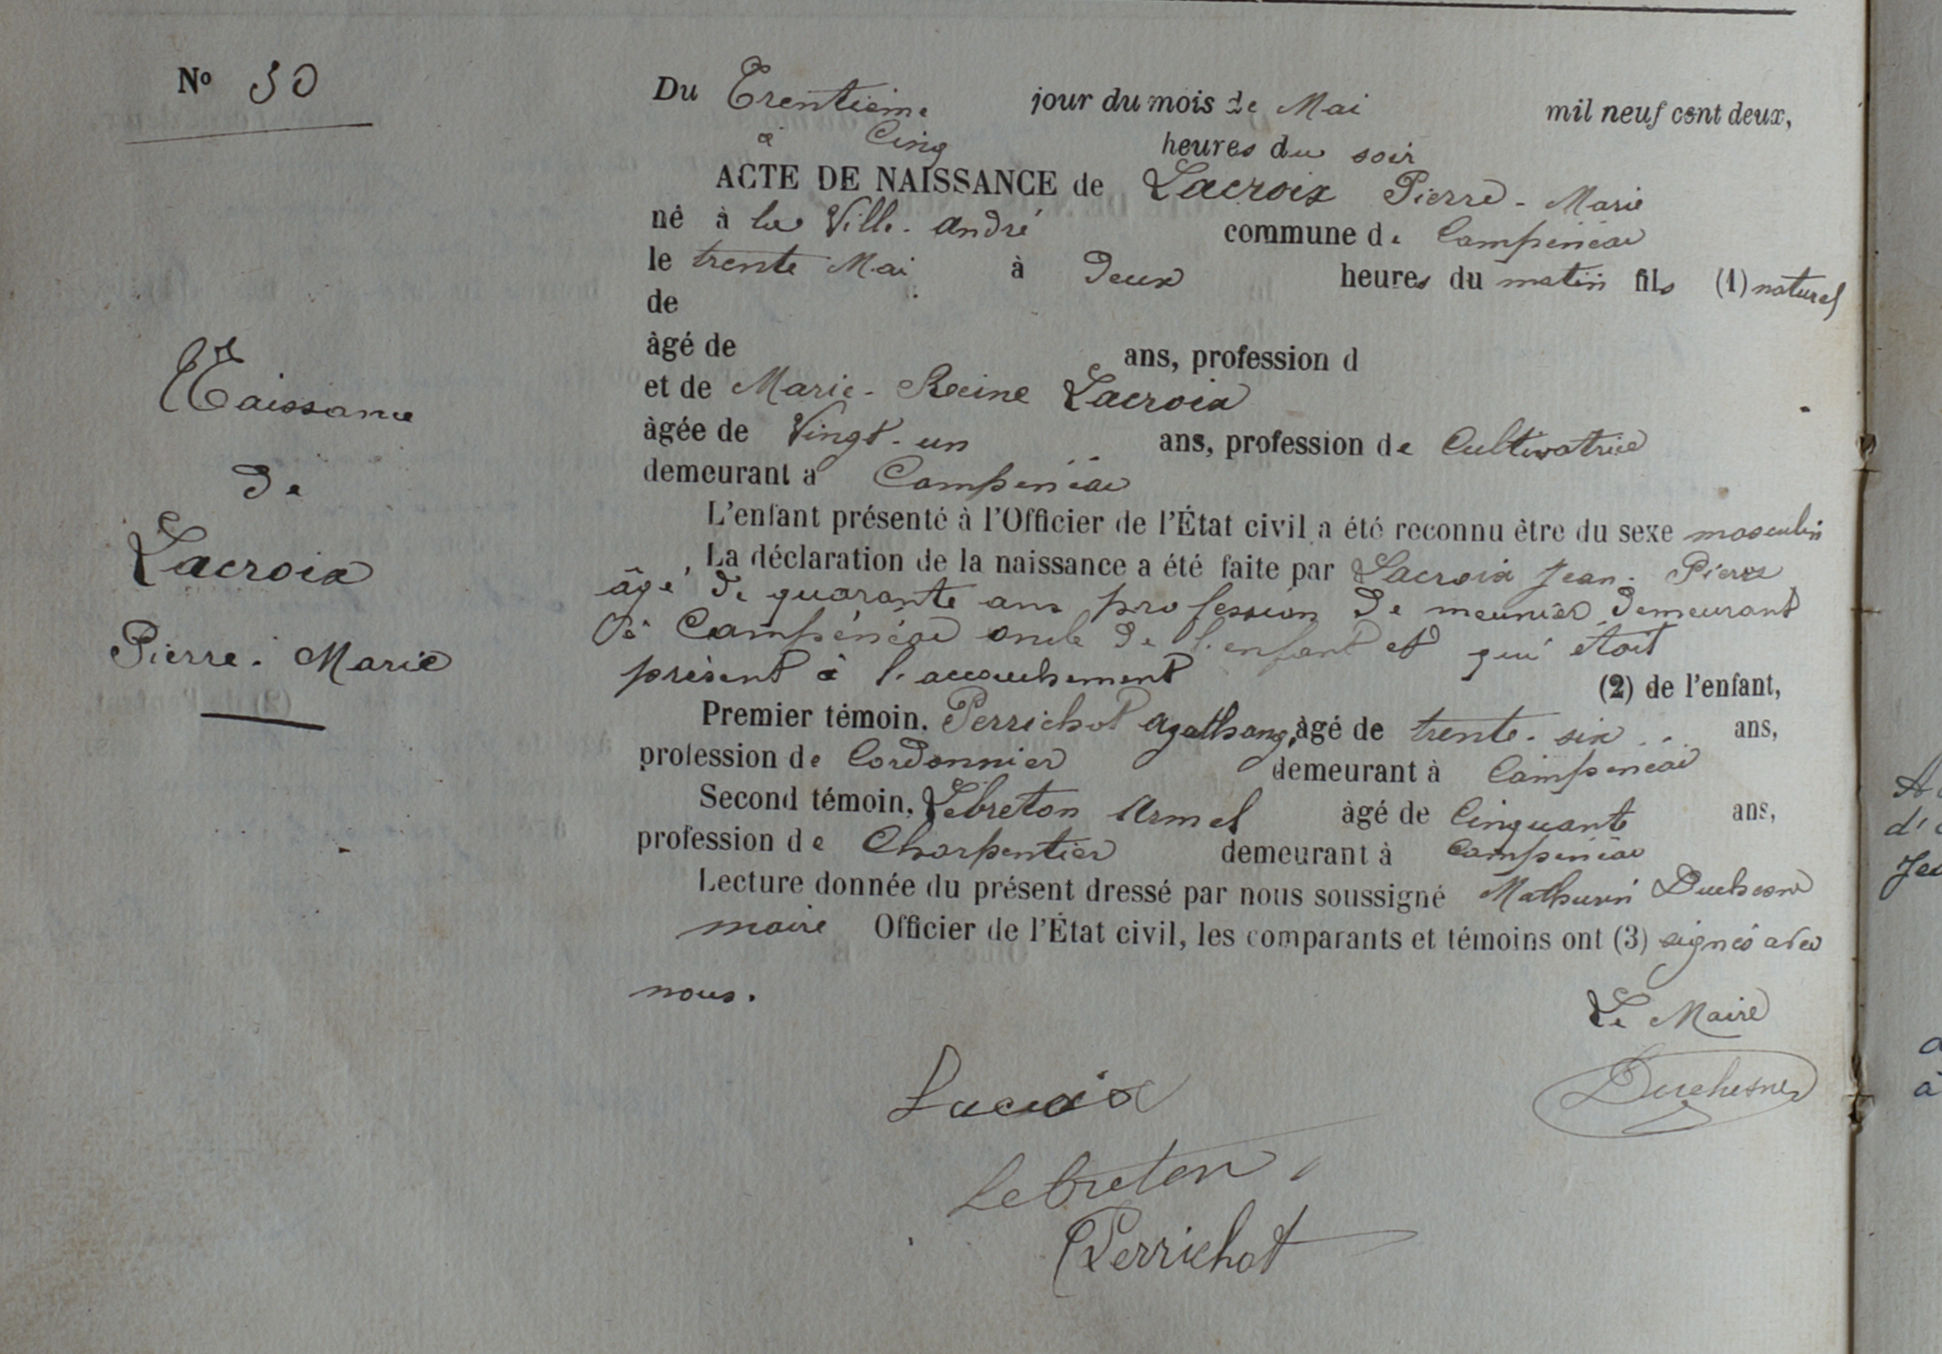 N° 50
Du Trentième jour du mois de Mai mil neuf cent deux,
à Cinq heures du soir
ACTE DE NAISSANCE de Lacroix Pierre-Marie
né à la Ville-André commune de Campénéac
le trente Mai à deux heures du matin fils (1) naturel
de
âgé de ans, profession d
et de Marie-Reine Lacroix
âgée de Vingt-un ans, profession de Cultivatrice
demeurant à Campénéac
L'enfant présenté à l'Officier de l'État civil a été reconnu être du sexe masculin
La déclaration de la naissance a été faite par Lacroix Jean-Pierre
âgé de quarante ans profession de meunier demeurant
à Campénéac oncle de l'enfant et qui était
présent à l'accouchement (2) de l'enfant,
Premier témoin, Perrichot Agathange, âgé de trente-six ans,
profession de Cordonnier demeurant à Campénéac
Second témoin, Lebreton Armel âgé de Cinquante ans,
profession de Charpentier demeurant à Campénéac
Lecture donnée du présent dressé par nous soussigné Mathurin Duchesne
maire Officier de l'État civil, les comparants et témoins ont (3) signés avec
nous.
Le Maire
Lacroix
Duchesne
Lebreton
Perrichot
Naissance
de
Lacroix
Pierre-Marie